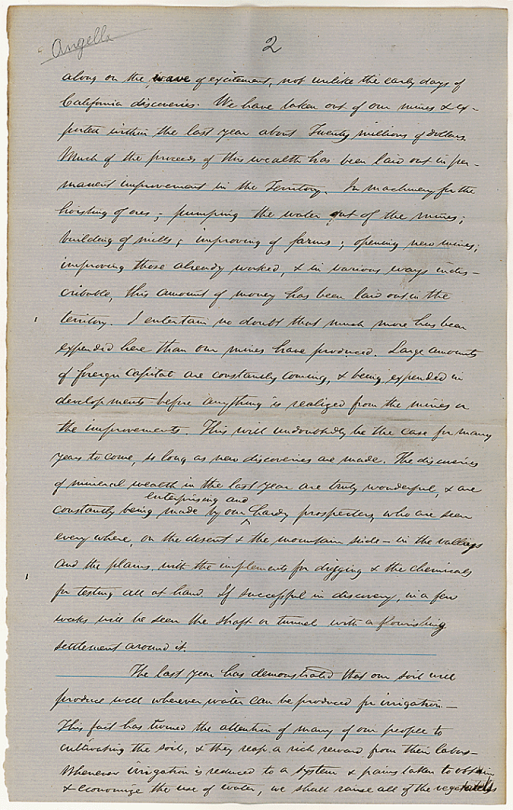 Angella
2
along on the wave of excitement, not unlike the early days of
California discoveries. We have taken out of our mines & ex-
ported within the last year about Twenty millions of dollars.
Much of the proceeds of this wealth has been laid out in per-
manent improvement in the Territory. In machinery for the
hoisting of ores; pumping the water out of the mines;
building of mills; improving of farms; opening new mines;
improving those already worked, & in various ways indis-
cribable, this amount of money has been laid out in the
territory. I entertain no doubt that much more has been
expended here than our mines have produced. Large amounts
of foreign Capital are constantly coming, & being expended in
developments before anything is realized from the mines or
the improvements. This will undoubtedly be the case for many
years to come, so long as new discoveries are made. The discoveries
of mineral wealth in the last year are truly wonderful, & are
enterprising and
constantly being made by our ^ hardy prospecters, who are seen
every where, on the desert & the mountain side – in the valleys
and the plains, with the implements for digging & the chemicals
for testing all at hand. If successful in discovery, in a few
weeks will be seen the shaft or tunnel with a flourishing
settlement around it.
The last year has demonstrated that our soil will
produce well wherever water can be produced for irrigation –
This fact has turned the attention of many of our people to
cultivating the soil, & they reap a rich reward from their labor –
Whenever irrigation is reduced to a system & pains taken to obtain
& economize the use of water, we shall raise all of the vegetables